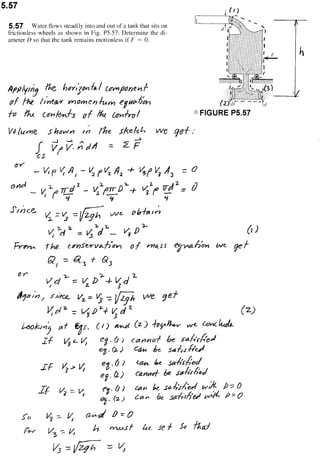 5.57
5.57 Water flows steadily into and out of a tank that sits on
frictionless wheels as shown in Fig. P5.57. Determine the di-
ameter D so that the tank remains motionless if F = 0.
(1)
F
h
(2)
(3)
FIGURE P5.57
Applying the horizontal component
of the linear momentum equation
to the contents of the control
volume shown in the sketch we get:
∫cs V ρ V · n̂ dA = Σ F
or
- V₁ρV₁A₁ - V₂ρV₂A₂ + V₃ρV₃A₃ = 0
and
- V₁²ρ πd²/4 - V₂²ρ πD²/4 + V₃²ρ πd²/4 = 0
Since V₂ = V₃ = √2gh we obtain
V₁²d² = V₃²d² - V₃²D² (1)
From the conservation of mass equation we get
Q₁ = Q₂ + Q₃
or
V₁d² = V₂D² + V₃d²
Again, since V₂ = V₃ = √2gh we get
V₁d² = V₃D² + V₃d² (2)
Looking at Eqs. (1) and (2) together we conclude
If V₃ < V₁ eq. (1) cannot be satisfied
eq. (2) can be satisfied
If V₃ > V₁ eq. (1) can be satisfied
eq. (2) cannot be satisfied
If V₃ = V₁ eq. (1) can be satisfied with D = 0
eq. (2) can be satisfied with D = 0
So V₃ = V₁ and D = 0
For V₃ = V₁ h must be set so that
V₃ = √2gh = V₁